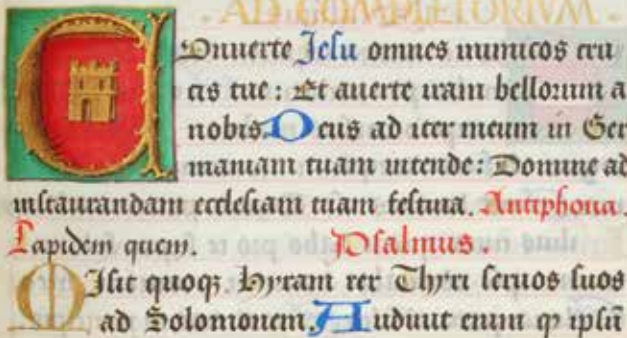 AD COMPLETORIVM
Conuerte Jesu omnes inimicos cru
cis tue: Et auerte iram bellorum a
nobis. Deus ad iter meum in Ger
maniam tuam intende: Domine ad
instaurandam ecclesiam tuam festina. Antiphona.
Lapidem quem. Psalmus.
Misit quoqꝫ Hyram rex Thyri seruos suos
ad Solomonem. Audiuit enim ꝙ ipsū